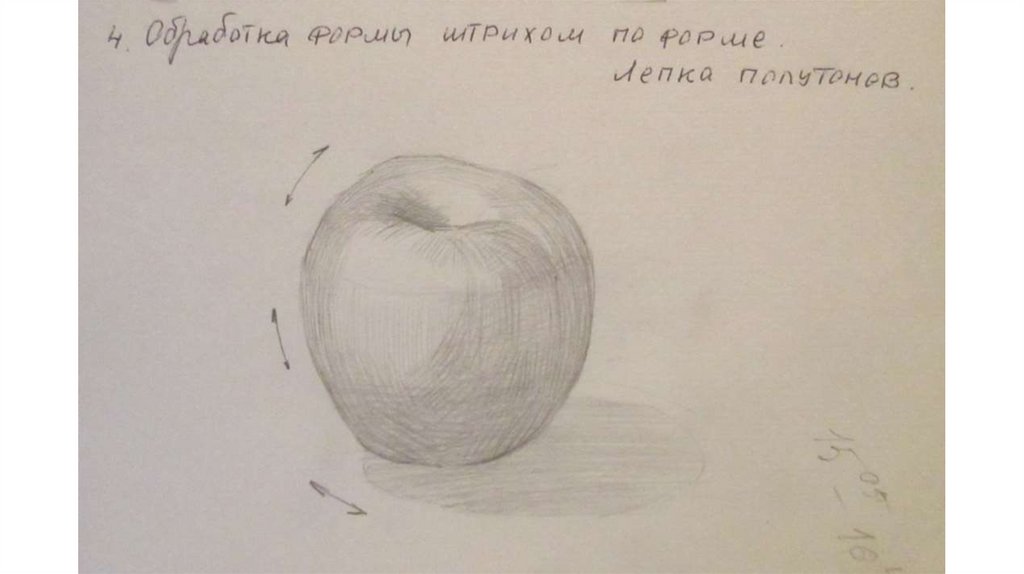 4. Обработка формы штрихом по форме.
Лепка полутонов.
15 05 - 16